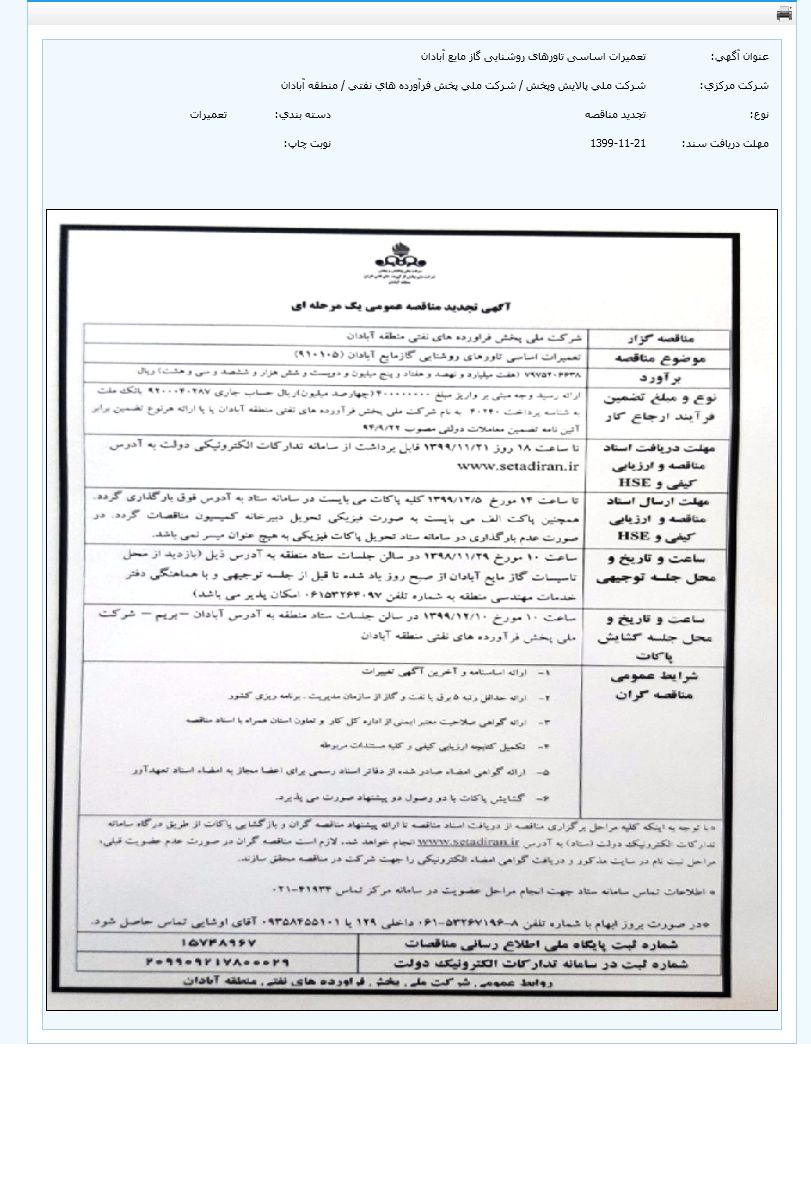 عنوان آگهی: تعمیرات اساسی تاورهای روشنایی گاز مایع آبادان
شرکت مرکزي: شرکت ملي پالایش وپخش / شرکت ملي پخش فرآورده هاي نفتي / منطقه آبادان
نوع: تجدید مناقصه دسته بندي: تعمیرات
مهلت دریافت سند: 1399-11-21 نوبت چاپ:
منطقه آبادان
آگهی تجدید مناقصه عمومی یک مرحله ای
مناقصه گزار شرکت ملی پخش فراورده های نفتی منطقه آبادان
موضوع مناقصه تعمیرات اساسی تاورهای روشنایی گازمایع آبادان (۹۱۰۱۰۵)
برآورد ۷۹۷۵۲۰۶۶۳۸ (هفت میلیارد و نهصد و هفتاد و پنج میلیون و دویست و شش هزار و ششصد و سی و هشت) ریال
نوع و مبلغ تضمین فرآیند ارجاع کار
ارائه رسید وجه مبنی بر واریز مبلغ ۴۰۰۰۰۰۰۰۰ (چهارصد میلیون)ریال حساب جاری ۹۲۰۰۰۴۰۲۸۷ بانک ملت
به شناسه پرداخت ۴۰۲۴۰ به نام شرکت ملی پخش فرآورده های نفتی منطقه آبادان یا با ارائه هرنوع تضمین برابر
آئین نامه تضمین معاملات دولتی مصوب ۹۴/۹/۲۲
مهلت دریافت اسناد
مناقصه و ارزیابی
کیفی و HSE
تا ساعت ۱۸ روز ۱۳۹۹/۱۱/۲۱ قابل برداشت از سامانه تدارکات الکترونیکی دولت به آدرس
www.setadiran.ir
مهلت ارسال اسناد
مناقصه و ارزیابی
کیفی و HSE
تا ساعت ۱۴ مورخ ۱۳۹۹/۱۲/۵ کلیه پاکات می بایست در سامانه ستاد به آدرس فوق بارگذاری گردد.
همچنین پاکت الف می بایست به صورت فیزیکی تحویل دبیرخانه کمیسیون مناقصات گردد. در
صورت عدم بارگذاری در سامانه ستاد تحویل پاکات فیزیکی به هیچ عنوان میسر نمی باشد.
ساعت و تاریخ و
محل جلسه توجیهی
ساعت ۱۰ مورخ ۱۳۹۸/۱۱/۲۹ در سالن جلسات ستاد منطقه به آدرس ذیل (بازدید از محل
تاسیسات گاز مایع آبادان از صبح روز یاد شده تا قبل از جلسه توجیهی و با هماهنگی دفتر
خدمات مهندسی منطقه به شماره تلفن ۰۶۱۵۳۲۶۴۰۹۷ امکان پذیر می باشد)
ساعت و تاریخ و
محل جلسه گشایش
پاکات
ساعت ۱۰ مورخ ۱۳۹۹/۱۲/۱۰ در سالن جلسات ستاد منطقه به آدرس آبادان –بریم– شرکت
ملی پخش فرآورده های نفتی منطقه آبادان
شرایط عمومی
مناقصه گران
۱- ارائه اساسنامه و آخرین آگهی تغییرات
۲- ارائه حداقل رتبه ۵ برق یا نفت و گاز از سازمان مدیریت ، برنامه ریزی کشور
۳- ارائه گواهی صلاحیت معتبر ایمنی از اداره کل کار و تعاون استان همراه با اسناد مناقصه
۴- تکمیل کتابچه ارزیابی کیفی و کلیه مستندات مربوطه
۵- ارائه گواهی امضاء صادر شده از دفاتر اسناد رسمی برای اعضا مجاز به امضاء اسناد تعهدآور
۶- گشایش پاکات با دو وصول دو پیشنهاد صورت می پذیرد.
*با توجه به اینکه کلیه مراحل برگزاری مناقصه از دریافت اسناد مناقصه تا ارائه پیشنهاد مناقصه گران و بازگشایی پاکات از طریق درگاه سامانه
تدارکات الکترونیک دولت (ستاد) به آدرس www.setadiran.ir انجام خواهد شد، لازم است مناقصه گران در صورت عدم عضویت قبلی،
مراحل ثبت نام در سایت مذکور و دریافت گواهی امضاء الکترونیکی را جهت شرکت در مناقصه محقق سازند.
* اطلاعات تماس سامانه ستاد جهت انجام مراحل عضویت در سامانه مرکز تماس ۴۱۹۳۴-۰۲۱
*در صورت بروز ابهام با شماره تلفن ۸-۵۳۲۶۷۱۹۶-۰۶۱ داخلی ۱۲۹ یا ۰۹۳۵۸۴۵۵۱۰۱ آقای اوشایی تماس حاصل شود.
شماره ثبت پایگاه ملی اطلاع رسانی مناقصات ۱۵۷۴۸۹۶۷
شماره ثبت در سامانه تدارکات الکترونیک دولت ۲۰۹۹۰۹۲۱۷۸۰۰۰۲۹
روابط عمومی شرکت ملی پخش فراورده های نفتی منطقه آبادان